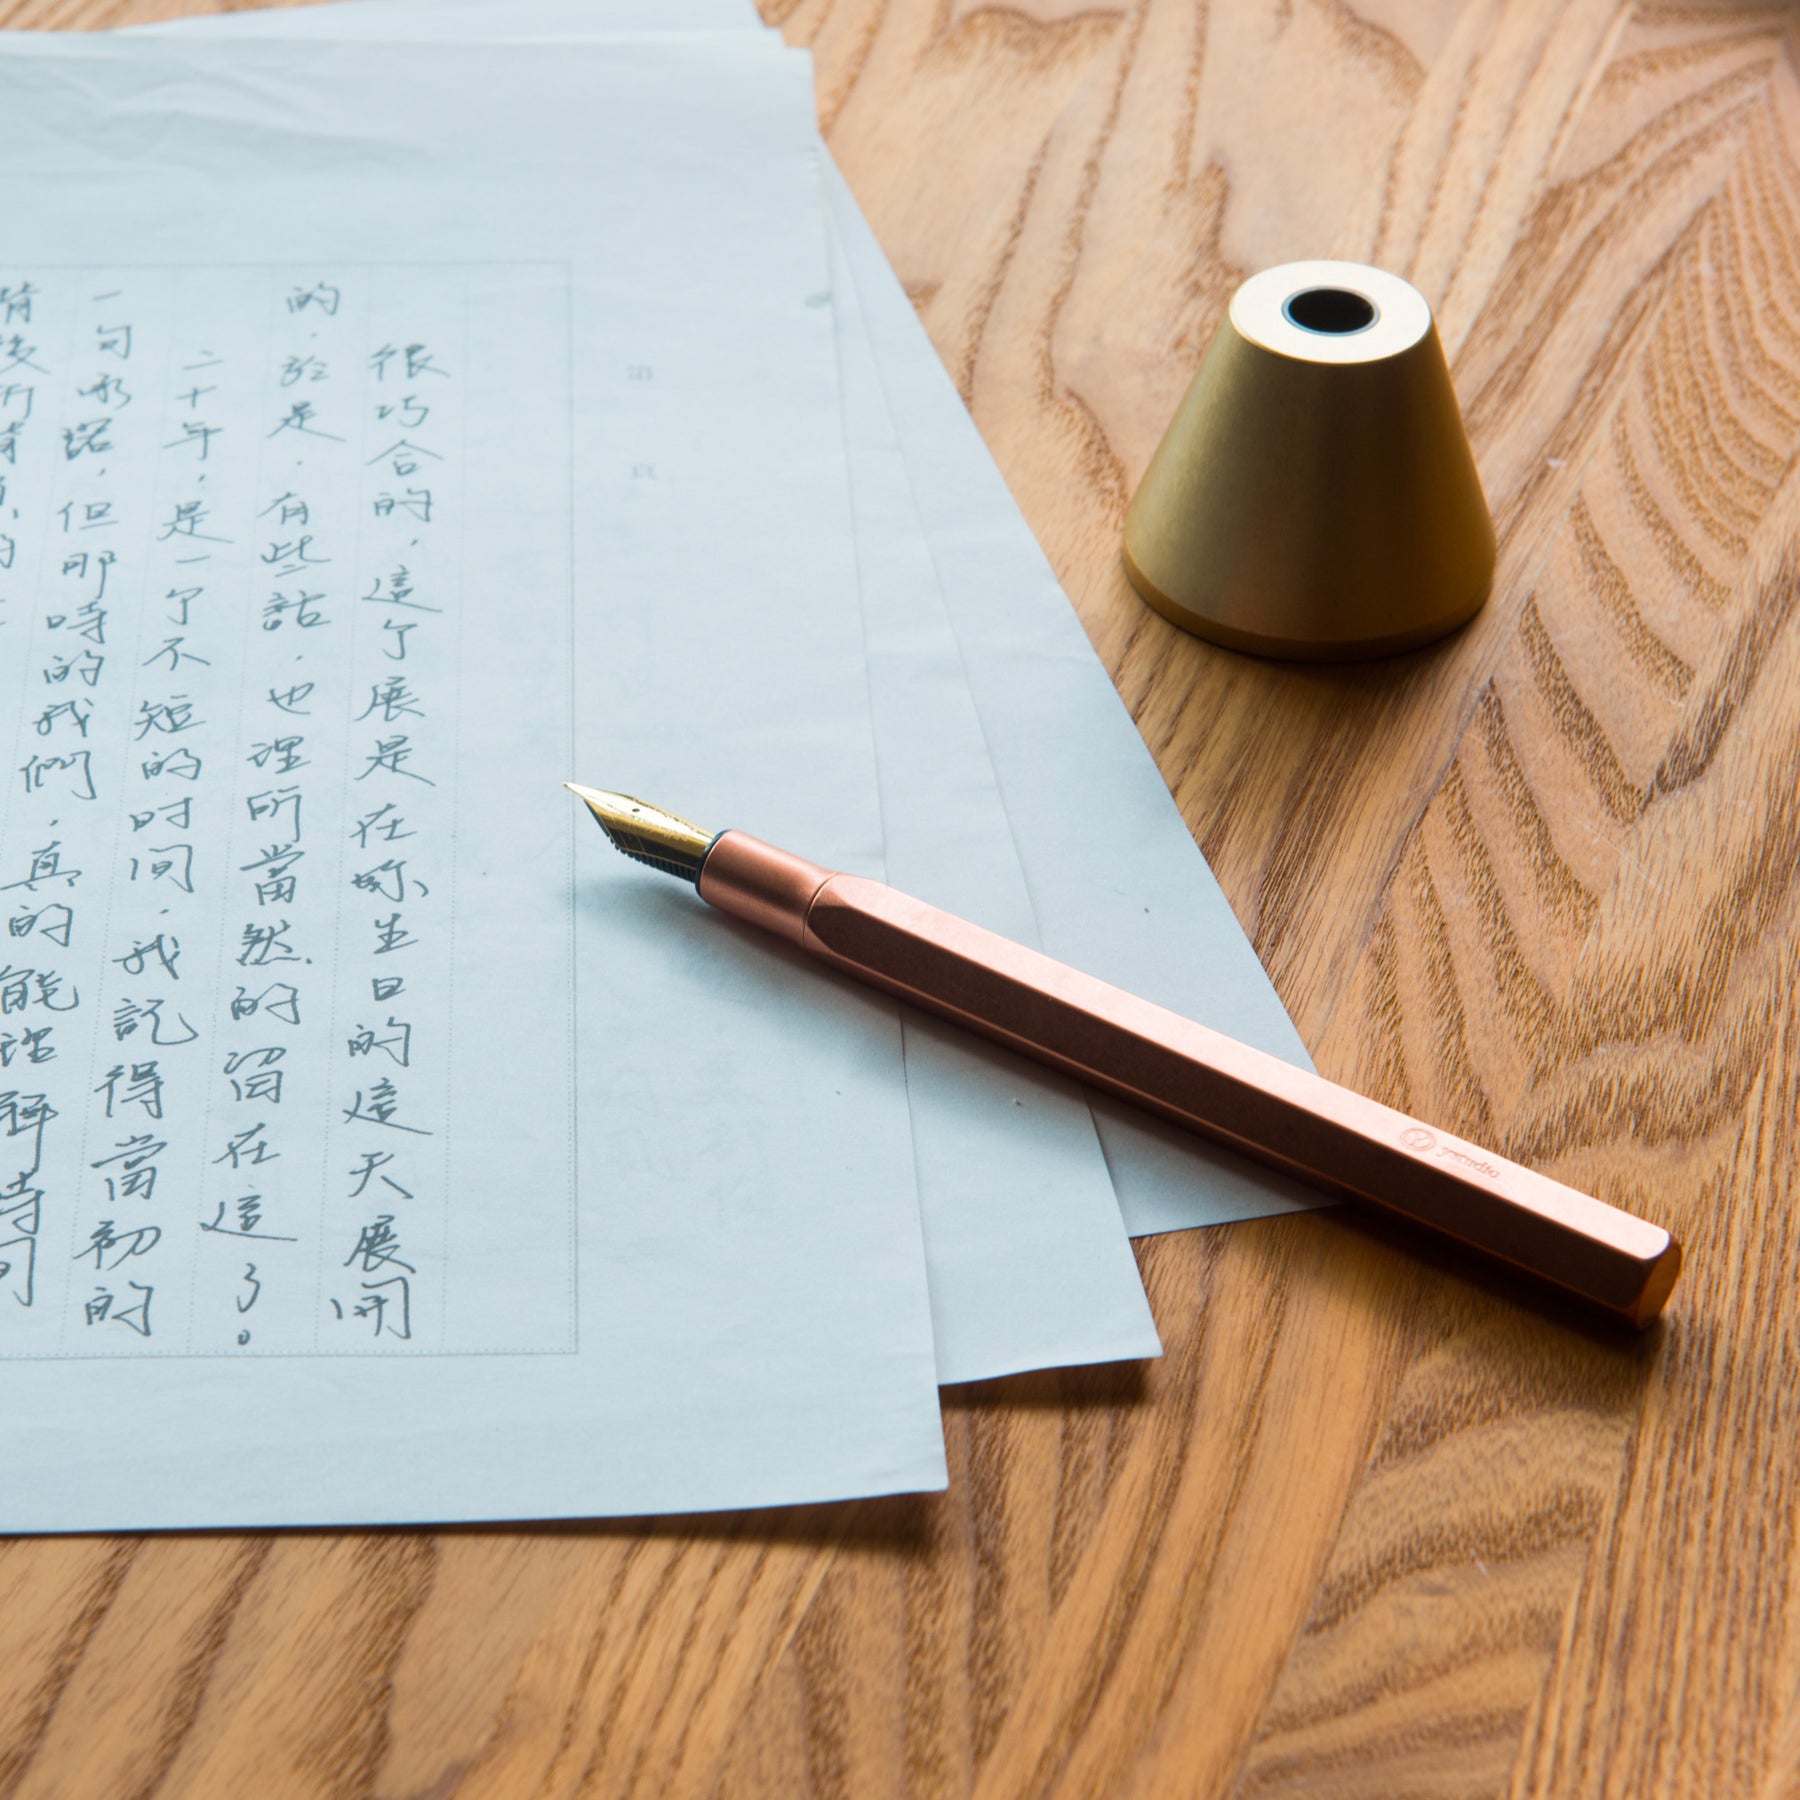 第 頁
很巧合的，這个展是在妳生日的這天展開
的，於是，有些話，也理所當然的留在這了。
二十年，是一个不短的时间，我記得當初的
一句承諾，但那時的我們，真的能理解時间
背後所背負的
ystudio